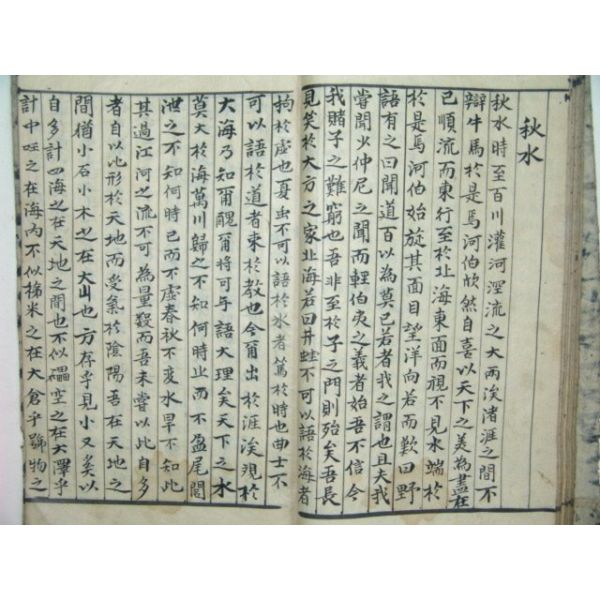 秋水
秋水時至百川灌河涇流之大兩涘渚涯之間不
辯牛馬於是焉河伯欣然自喜以天下之美為盡在
己順流而東行至於北海東面而視不見水端於
於是焉河伯始旋其面目望洋向若而歎曰野
語有之曰聞道百以為莫己若者我之謂也且夫我
嘗聞少仲尼之聞而輕伯夷之義者始吾不信今
我睹子之難窮也吾非至於子之門則殆矣吾長
見笑於大方之家北海若曰井蛙不可以語於海者
拘於虛也夏虫不可以語於冰者篤於時也曲士不
可以語於道者束於教也今爾出於涯涘觀於
大海乃知爾醜爾將可与語大理矣天下之水
莫大於海萬川歸之不知何時止而不盈尾閭
泄之不知何時已而不虛春秋不變水旱不知此
其過江河之流不可為量數而吾未嘗以此自多
者自以比形於天地而受氣於陰陽吾在天地之
間猶小石小木之在大山也方存乎見小又奚以
自多計四海之在天地之間也不似礨空之在大澤乎
計中国之在海內不似稊米之在大倉乎號物之